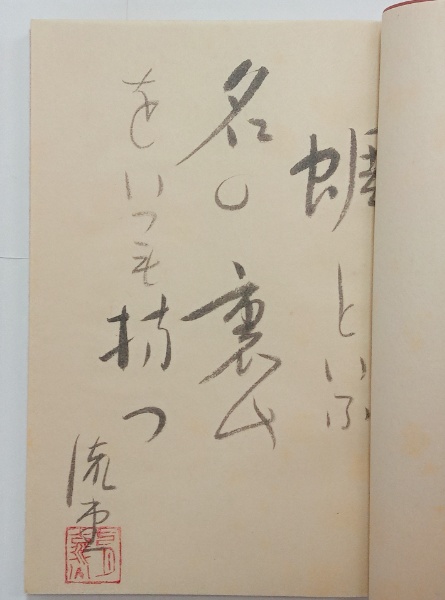 蜩といふ
名の裏山
をいつも持つ
流